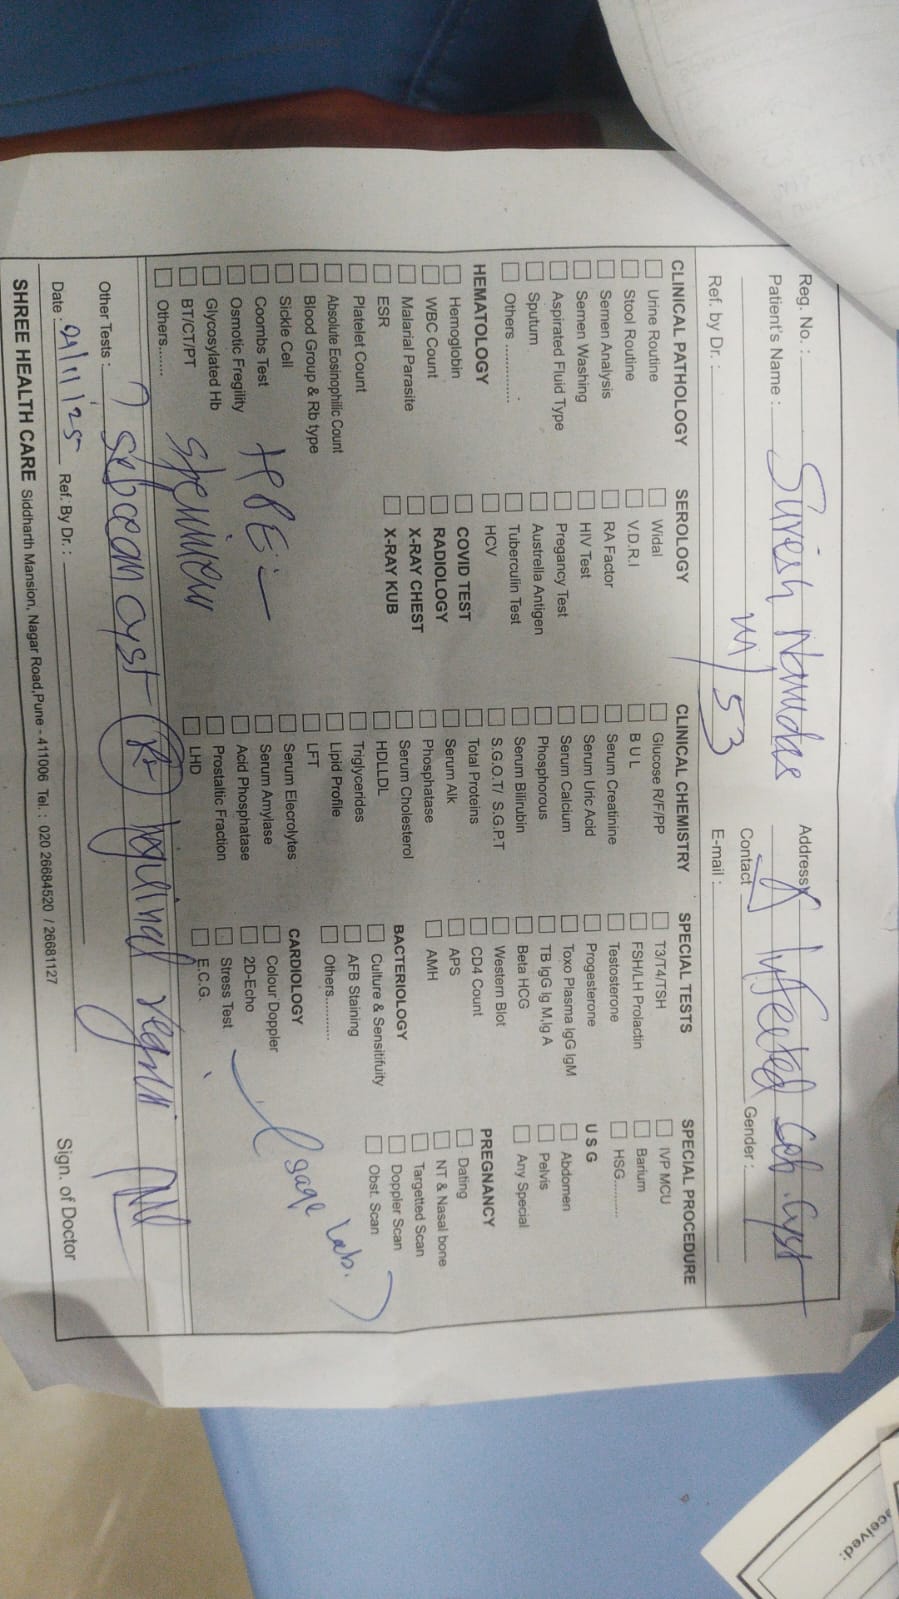 Reg. No. :
Patient's Name : Suresh Namdas
M/53
Address
Infected Seb. Cyst
Contact
Gender :
Ref. by Dr. :
E-mail :
CLINICAL PATHOLOGY
Urine Routine
Stool Routine
Semen Analysis
Semen Washing
Aspirated Fluid Type
Sputum
Others .............
HEMATOLOGY
Hemoglobin
WBC Count
Malarial Parasite
ESR
Platelet Count
Absolute Eosinophilic Count
Blood Group & Rb type
Sickle Cell
Coombs Test
Osmotic Fregility
Glycosylated Hb
BT/CT/PT
Others.......
SEROLOGY
Widal
V.D.R.I
RA Factor
HIV Test
Pregancy Test
Austrella Antigen
Tuberculin Test
HCV
COVID TEST
RADIOLOGY
X-RAY CHEST
X-RAY KUB
HPE :-
CLINICAL CHEMISTRY
Glucose R/F/PP
B U L
Serum Creatinine
Serum Uric Acid
Serum Calcium
Phosphorous
Serum Bilirubin
S.G.O.T/ S.G.P.T
Total Proteins
Serum Alk
Phosphatase
Serum Cholesterol
HDLLDL
Triglycerides
Lipid Profile
LFT
Serum Elecrolytes
Serum Amylase
Acid Phosphatase
Prostaltic Fraction
LHD
SPECIAL TESTS
T3/T4/TSH
FSH/LH Prolactin
Testosterone
Progesterone
Toxo Plasma IgG IgM
TB IgG Ig M,Ig A
Beta HCG
Western Blot
CD4 Count
APS
AMH
BACTERIOLOGY
Culture & Sensitifuity
AFB Staining
Others..........
CARDIOLOGY
Colour Doppler
2D-Echo
Stress Test
E.C.G.
SPECIAL PROCEDURE
IVP MCU
Barium
HSG.........
U S G
Abdomen
Pelvis
Any Special
PREGNANCY
Dating
NT & Nasal bone
Targetted Scan
Doppler Scan
Obst. Scan
Lab.
Other Tests : ? Sebcean cyst (Rt) Inguinal region
Date : Ref. By Dr. :
Sign. of Doctor
SHREE HEALTH CARE Siddharth Mansion, Nagar Road,Pune - 411006 Tel. : 020 26684520 / 26681127
ceived: